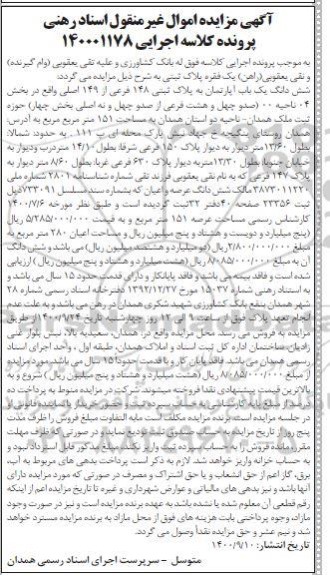 آگهی مزایده اموال غیرمنقول اسناد رهنی
پرونده کلاسه اجرایی ۱۴۰۰۰۱۱۷۸
به موجب پرونده اجرایی کلاسه فوق له بانک کشاورزی و علیه تقی یعقوبی (وام گیرنده)
و نقی یعقوبی(راهن) یک فقره پلاک ثبتی به شرح ذیل مزایده می گردد:
شش دانگ یک باب آپارتمان به پلاک ثبتی ۱۴۸ فرعی از ۱۴۹ اصلی واقع در بخش
۰۴ ناحیه ۰۰ (صدو چهل و هشت فرعی از صدو چهل و نه اصلی بخش چهار) حوزه
ثبت ملک همدان- ناحیه دو استان همدان به مساحت ۱۵۱ متر مربع به آدرس:
همدان روستای خ جهاد نبش پارک محله ای پ ۱۱۱ . به حدود: شمالا:
بطول ۱۳/۶۰متر دیوار به دیوار پلاک ۱۵۰ فرعی شرقا: بطول ۱۴/۱۰ متر درب ودیوار به
خیابان جنوبا: بطول ۱۳/۳۰متر به دیوار پلاک ۶۳۰ فرعی غربا: بطول ۸/۶۰ متر دیوار به
پلاک ۱۴۷ فرعی که به نام نقی یعقوبی فرزند تقی شماره شناسنامه ۲۸۰۱ شماره ملی
مالک شش دانگ عرصه و اعیان که بشماره سند مسلسل
ثبت ۲۳۳۵۶ صفحه دفتر ۳۲ثبت گردیده است و طبق نظر مورخه ۱۴۰۰/۷/۶
کارشناس رسمی مساحت عرصه ۱۵۱ متر مربع و به قیمت ۵/۲۸۵/۰۰۰/۰۰۰ ریال
(پنج میلیارد و دویست و هشتاد و پنج میلیون ریال) و مساحت اعیان ۲۸۰ متر مربع به
مبلغ ۲/۸۰۰/۰۰۰/۰۰۰ ریال (دو میلیارد و هشتصد میلیون ریال) می باشد و شش دانگ
آن به مبلغ ۸/۰۸۵/۰۰۰/۰۰۰ ریال (هشت میلیارد و هشتاد و پنج میلیون ریال) ارزیابی
شده است و فاقد بیمه می باشد و فاقد پایانکار و دارای قدمت حدود ۱۵ سال می باشد و
به استناد رهنی شماره ۱۵۰۳۷ مورخ ۱۳۹۲/۱۲/۲۷ دفترخانه اسناد رسمی شماره ۲۸
شهر همدان بنفع بانک کشاورزی شهید شکری همدان در رهن می باشد و به علت عدم
انجام تعهد پلاک فوق از ساعت ۹ الی ۱۲ روز چهارشنبه تاریخ ۱۴۰۰/۹/۲۴ از طریق
مزایده به فروش می رسد محل مزایده واقع در همدان، سعیدیه بالا، نبش بلوار غنی
زادیان ساختمان اداره کل ثبت اسناد و املاک همدان، طبقه اول ، واحد اجرای اسناد
رسمی همدان می باشد فاقد پایان کار و با قدمت حدودا ۱۵ سال می باشد. مورد مزایده
از مبلغ ۸/۰۸۵/۰۰۰/۰۰۰ ریال (هشت میلیارد و هشتاد و پنج میلیون ریال) شروع و به
بالاترین قیمت پیشنهادی نقدا فروخته میشوند. شرکت در مزایده منوط به پرداخت ده
درصد از مبلغ پایه کارشناسی به حساب سپرده ثبت و حضور خریدار یا نماینده قانونی او
در جلسه مزایده است. برنده مزایده مکلف است مابه التفاوت مبلغ فروش را ظرف مدت
پنج روز از تاریخ مزایده به حساب صندوق ثبت تودیع نماید و در صورتی که ظرف مهلت
مقرر مانده فروش را به حساب سپرده ثبت واریز نکند، مبلغ مذکور قابل استرداد نبود و
به حساب خزانه واریز خواهد شد. لازم به ذکر است پرداخت بدهی های مربوط به آب،
برق، گاز اعم از حق انشعاب و یا حق اشتراک و مصرف در صورتی که مورد مزایده دارای
آنها باشد و نیز بدهی های مالیاتی و عوارض شهرداری و غیره تا تاریخ مزایده اعم از اینکه
رقم قطعی آن معلوم شده یا نشده باشد به عهده برنده مزایده است و نیز در صورت وجود
مازاد، وجوه پرداختی بابت هزینه های فوق از محل مازاد به برنده مزایده مسترد خواهد
شد و نیم عشر و حق مزایده نقداً وصول می گردد.
تاریخ انتشار: ۱۴۰۰/۹/۱۰
متوسل - سرپرست اجرای اسناد رسمی همدان